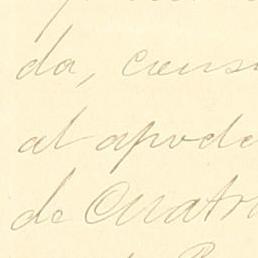 da, cens
al apode
de Cuatr